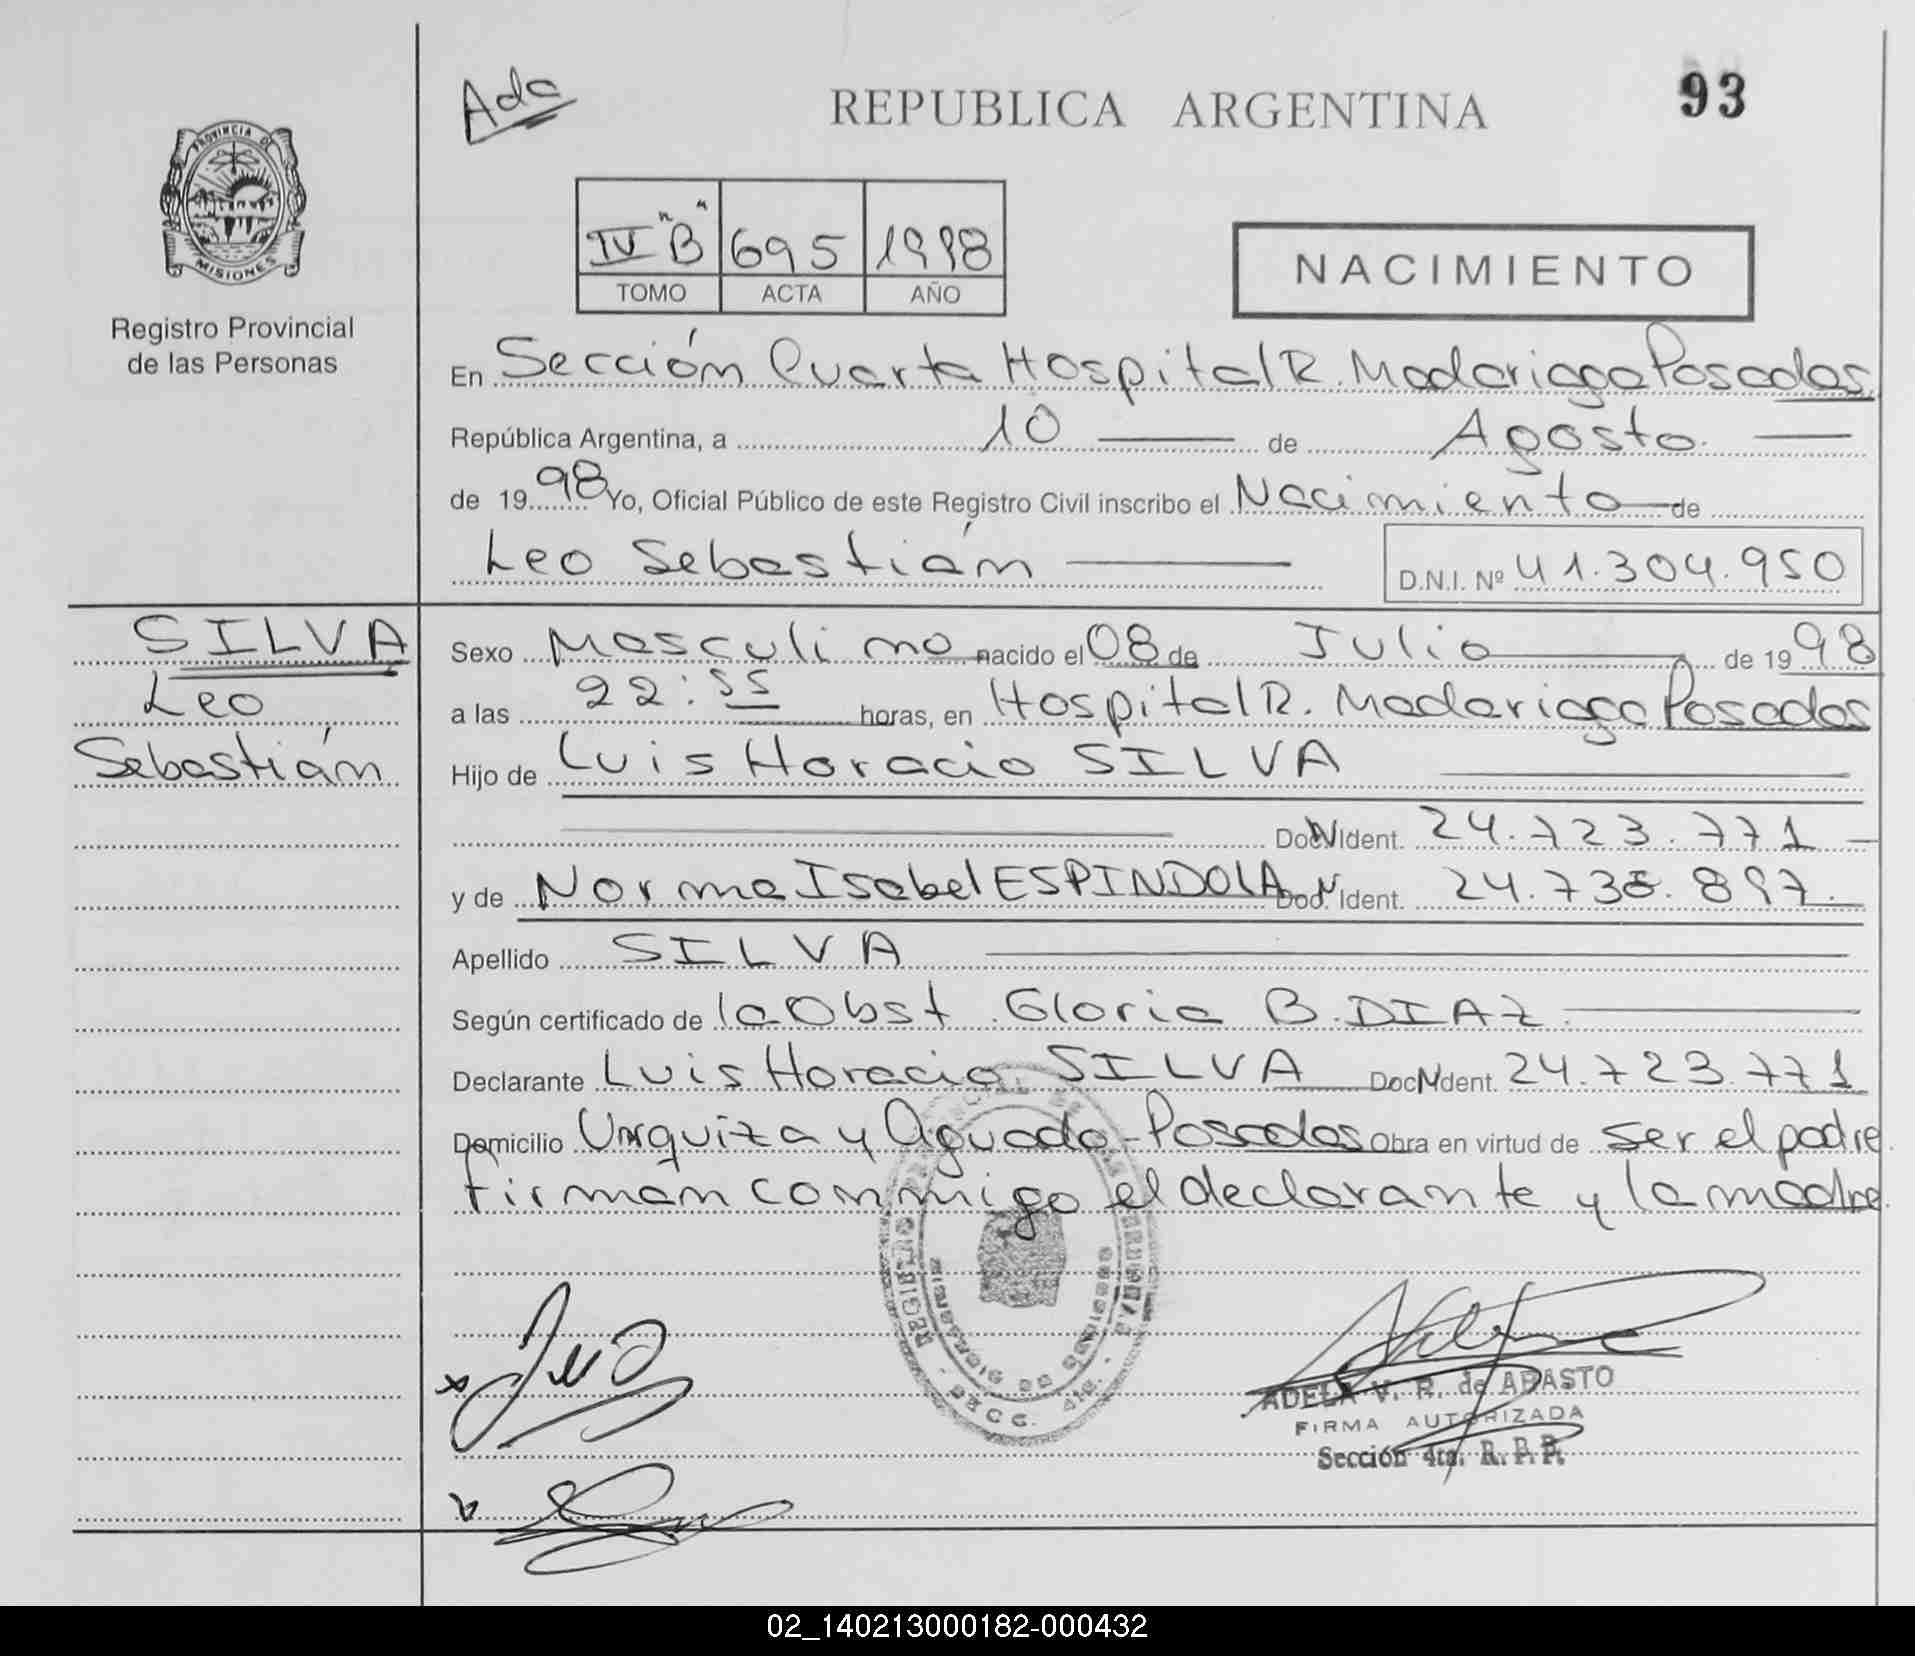 Ada
REPUBLICA ARGENTINA
93
PROVINCIA DE
MISIONES
Registro Provincial
de las Personas
IV "B" 695 1998
TOMO ACTA AÑO
NACIMIENTO
En Sección Cuarta Hospital R. Madariaga Posadas
República Argentina, a 10 de Agosto
de 1998 Yo, Oficial Público de este Registro Civil inscribo el Nacimiento de
Leo Sebastián
D.N.I. Nº 41.304.950
SILVA
Leo
Sebastián
Sexo Masculino nacido el 08 de Julio de 1998
a las 22:55 horas, en Hospital R. Madariaga Posadas
Hijo de Luis Horacio SILVA
Doc. Ident. 24.723.771
y de Norma Isabel ESPINDOLA Doc. Ident.
Apellido SILVA
Según certificado de la Obst. Gloria B. DIAZ
Declarante Luis Horacio SILVA Doc. Ident. 24.723.771
Domicilio Urquiza y Aguado - Posadas Obra en virtud de ser el padre
firman conmigo el declarante y la madre.
ADELA V. R. de ABASTO
FIRMA AUTORIZADA
Sección 4ta. R. P. P.
02_140213000182-000432